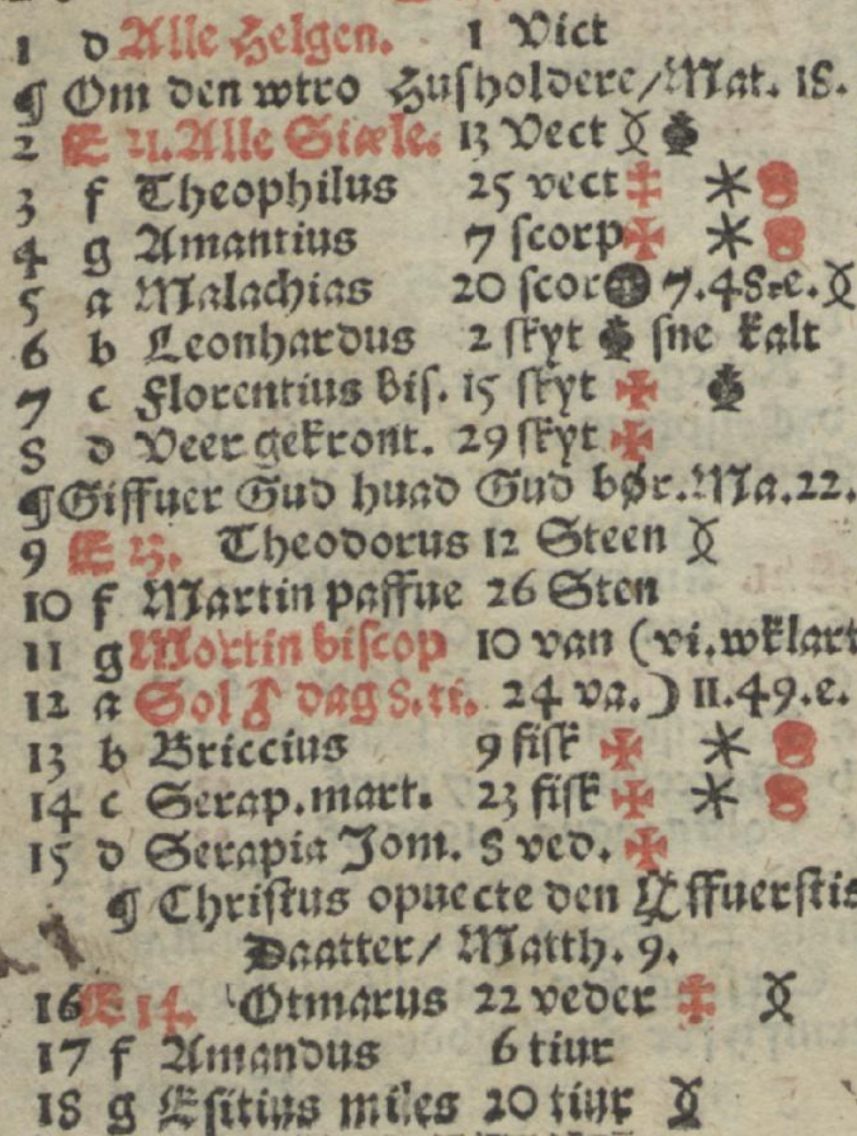 1 d Alle Helgen. 1 Vict
¶ Om den wtro Husholdere/Mat. 18.
2 E 21. Alle Siæle. 13 Vect
3 f Theophilus 25 vect
4 g Amantius 7 scorp
5 a Malachias 20 scor 7.48.e.
6 b Leonhardus 2 skyt sne kalt
7 c Florentius bis. 15 skyt
8 d Veer gekront. 29 skyt
¶ Giffuer Gud huad Gud bør. Ma. 22.
9 E Theodorus 12 Steen
10 f Martin paffue 26 Sten
11 g Mortin biscop 10 van (vi. wklart
12 a Sol ♐ dag 8. ti. 24 va.) 11.49.e.
13 b Briccius 9 fisk
14 c Serap. mart. 23 fisk
15 d Serapia Jom. 8 ved.
¶ Christus opuecte den Øffuerstis
Daatter/ Matth. 9.
16 E 14. Otmarus 22 veder
17 f Amandus 6 tiur
18 g Esitius miles 20 tiur